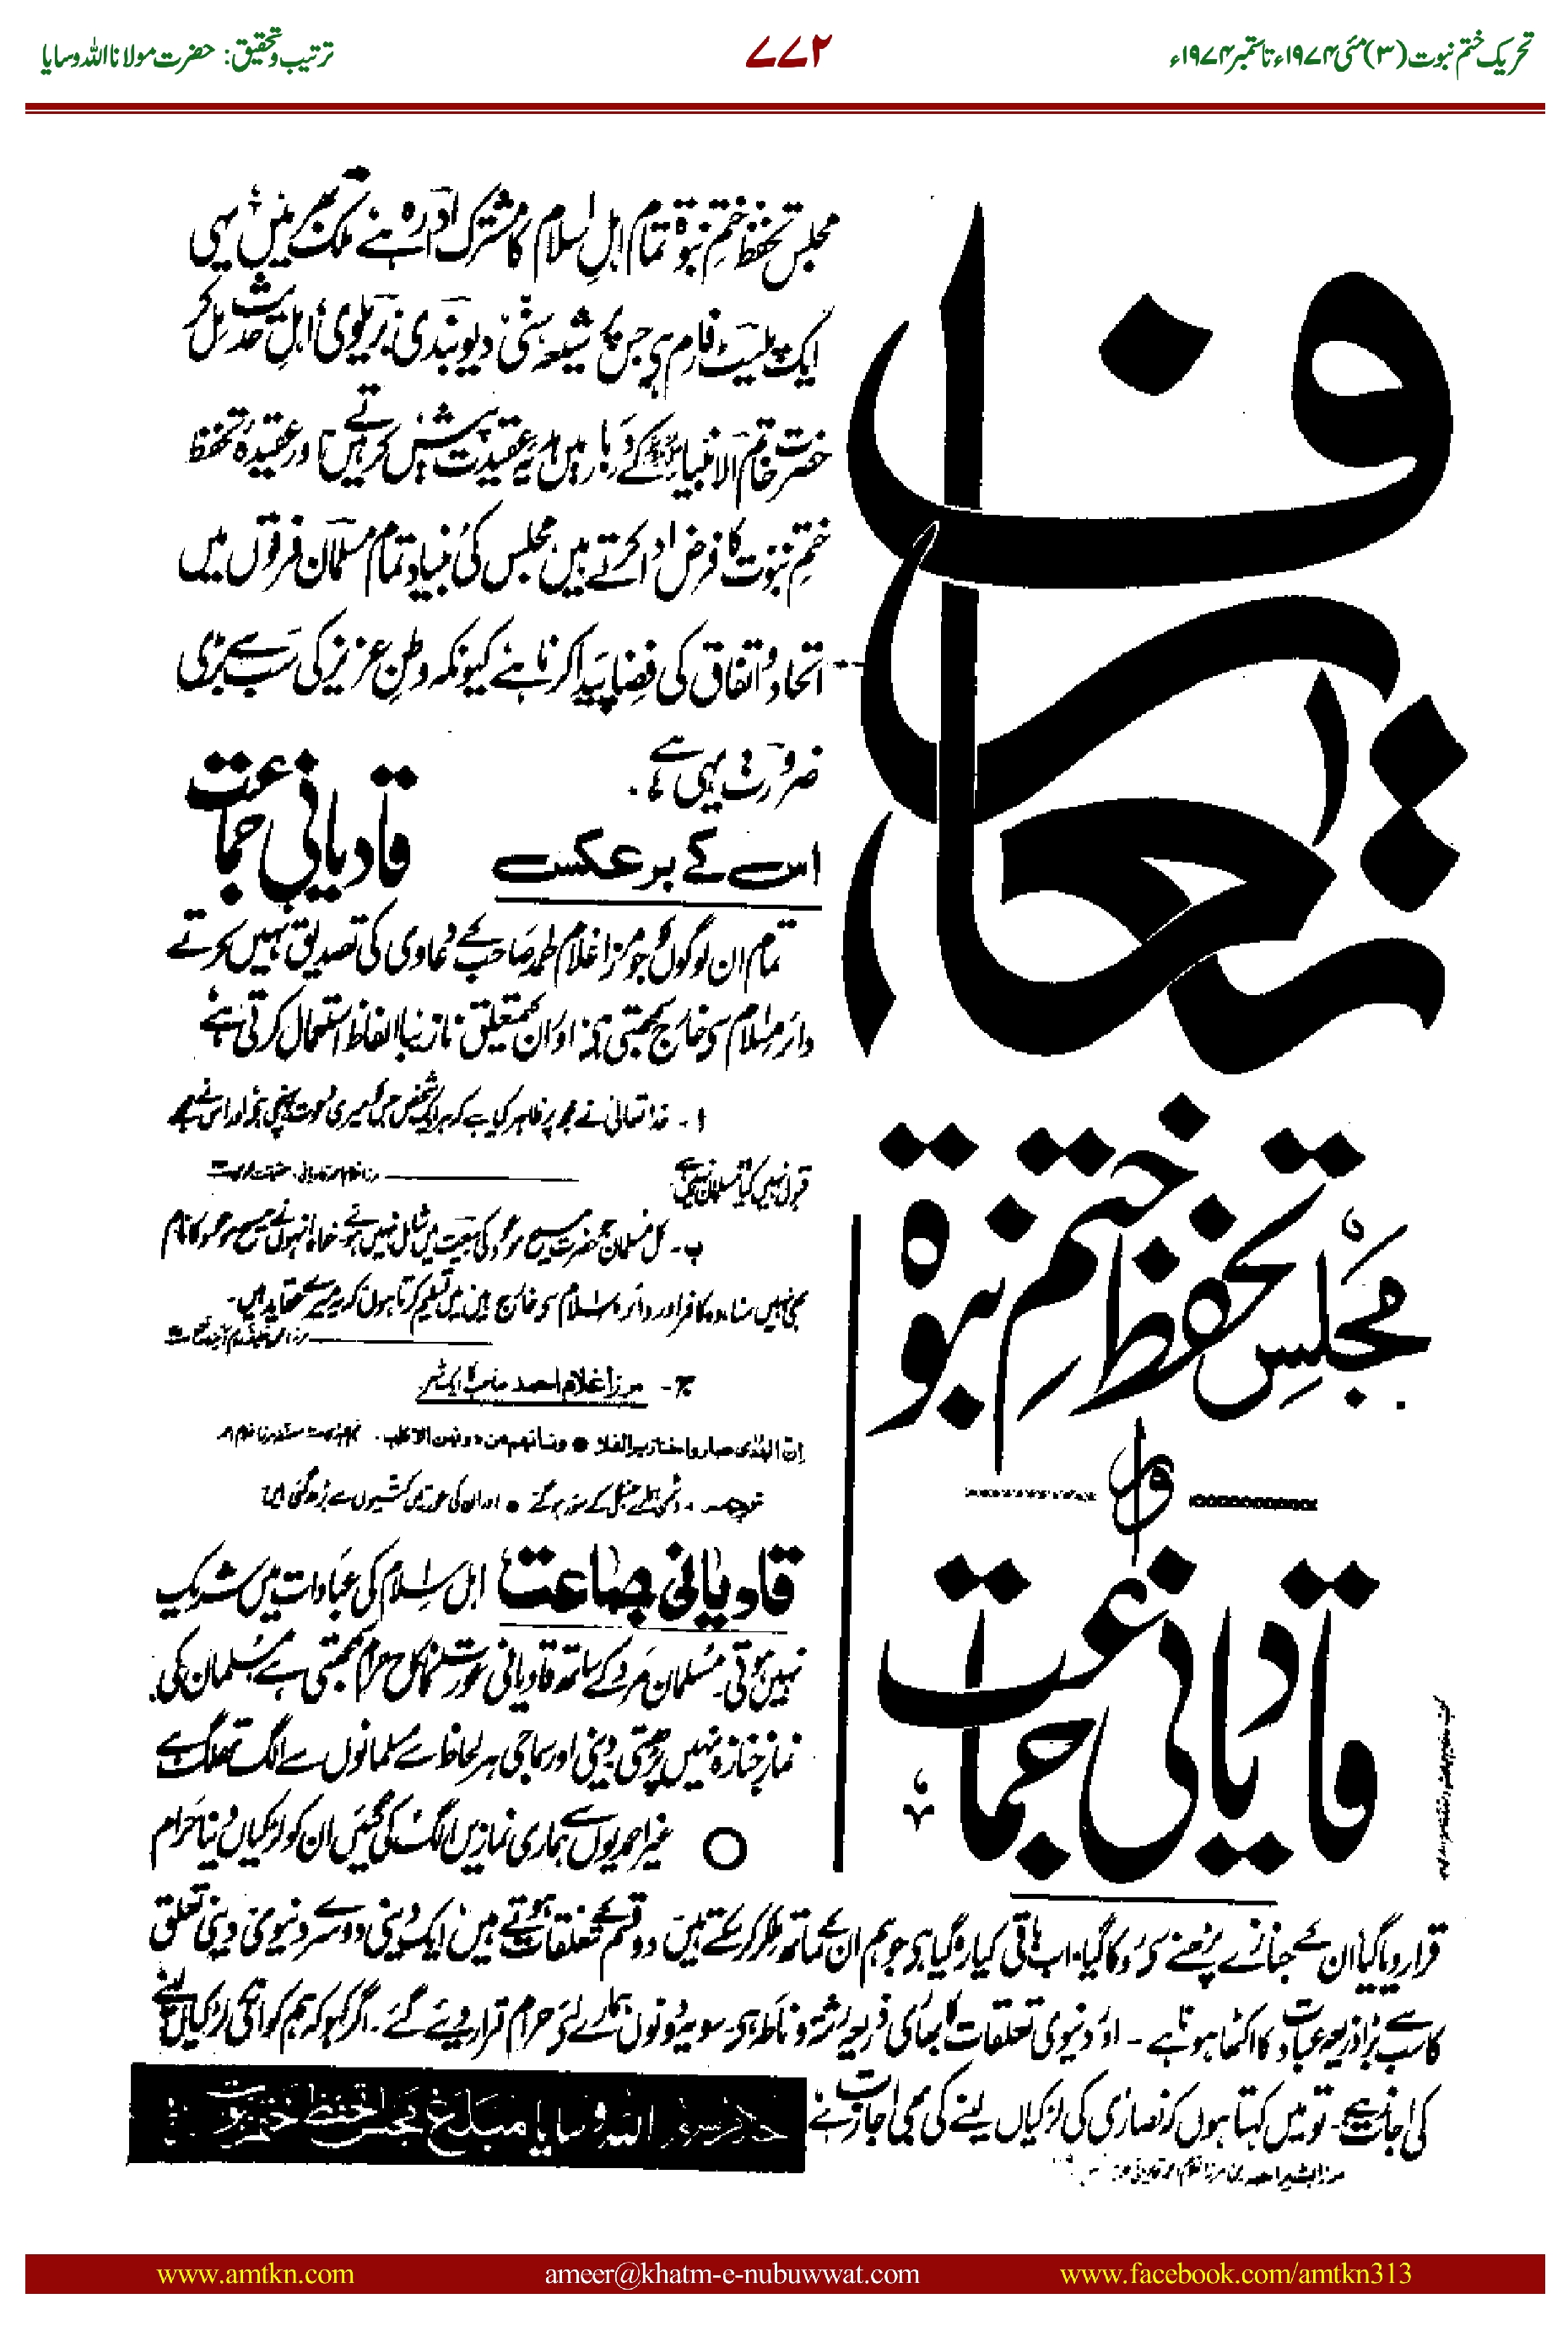 تحریک ختم نبوت (۳) مئی ۱۹۷۴ء تا ستمبر ۱۹۷۴ء
۷۷۲
ترتیب و تحقیق: حضرت مولانا اللہ وسایا
تعارف
مجلس تحفظ ختم نبوۃ
و
قادیانی جماعت
مجلس تحفظ ختم نبوۃ تمام اہل اسلام کا مشترک ادارہ ہے ملک بھر میں یہی
ایک پلیٹ فارم ہے جس پر شیعہ سنی دیوبندی بریلوی اہل حدیث مل کر
حضرت خاتم الانبیاء کے دربار میں ہدیہ عقیدت پیش کرتے ہیں اور عقیدہ تحفظ
ختم نبوت کا فرض ادا کرتے ہیں مجلس کی بنیاد تمام مسلمان فرقوں میں
اتحاد و اتفاق کی فضا پیدا کرنا ہے کیونکہ وطن عزیز کی سب سے بڑی
ضرورت یہی ہے۔
اس کے برعکس قادیانی جماعت
تمام ان لوگوں کو جو مرزا غلام احمد صاحب کے دعاوی کی تصدیق نہیں کرتے
دائرہ اسلام سے خارج سمجھتی ہے اور ان کے متعلق نازیبا الفاظ استعمال کرتی ہے
ا۔ خدا تعالیٰ نے مجھ پر ظاہر کیا ہے کہ ہر ایک شخص جس کو میری دعوت پہنچی ہے اور اس نے مجھے
قبول نہیں کیا مسلمان نہیں ہے
ب۔ کل مسلمان جو حضرت مسیح موعود کی بیعت میں شامل نہیں ہوئے خواہ انہوں نے مسیح موعود کا نام
بھی نہیں سنا وہ کافر اور دائرہ اسلام سے خارج ہیں میں تسلیم کرتا ہوں کہ میرے یہ عقاید ہیں۔
ج۔ مرزا غلام احمد صاحب کا ایک شعر
ان العدیٰ صاروا خنازیر الفلا ● ونسائہم من دونہن الاکلب۔
ترجمہ۔ دشمن ہمارے جنگل کے سور ہو گئے ● اور ان کی عورتیں کتیوں سے بڑھ گئی ہیں
قادیانی جماعت اہل اسلام کی عبادات میں شریک
نہیں ہوتی۔ مسلمان مرد کے ساتھ قادیانی عورت کا نکاح حرام سمجھتی ہے مسلمان کی
نماز جنازہ نہیں پڑھتی دینی اور سماجی ہر لحاظ سے مسلمانوں سے الگ تھلگ ہے
غیر احمدیوں سے ہماری نمازیں الگ کی گئیں ان کو لڑکیاں دینا حرام
قرار دیا گیا ان کے جنازے پڑھنے سے روکا گیا۔ اب باقی کیا رہ گیا ہے جو ہم ان کے ساتھ مل کر کر سکتے ہیں دو قسم کے تعلقات ہوتے ہیں ایک دینی دوسرے دنیوی دینی تعلق
کا سب سے بڑا ذریعہ عبادت کا اکٹھا ہونا ہے۔ اور دنیوی تعلقات کا بھاری ذریعہ رشتہ و ناطہ ہے۔ سو یہ دونوں ہمارے لئے حرام قرار دیئے گئے۔ اگر کہو کہ ہم کو انکی لڑکیاں لینے
کی اجازت ہے۔ تو میں کہتا ہوں کہ نصاریٰ کی لڑکیاں لینے کی بھی اجازت ہے
اللہ وسایا مبلغ مجلس تحفظ ختم نبوت
www.amtkn.com
ameer@khatm-e-nubuwwat.com
www.facebook.com/amtkn313